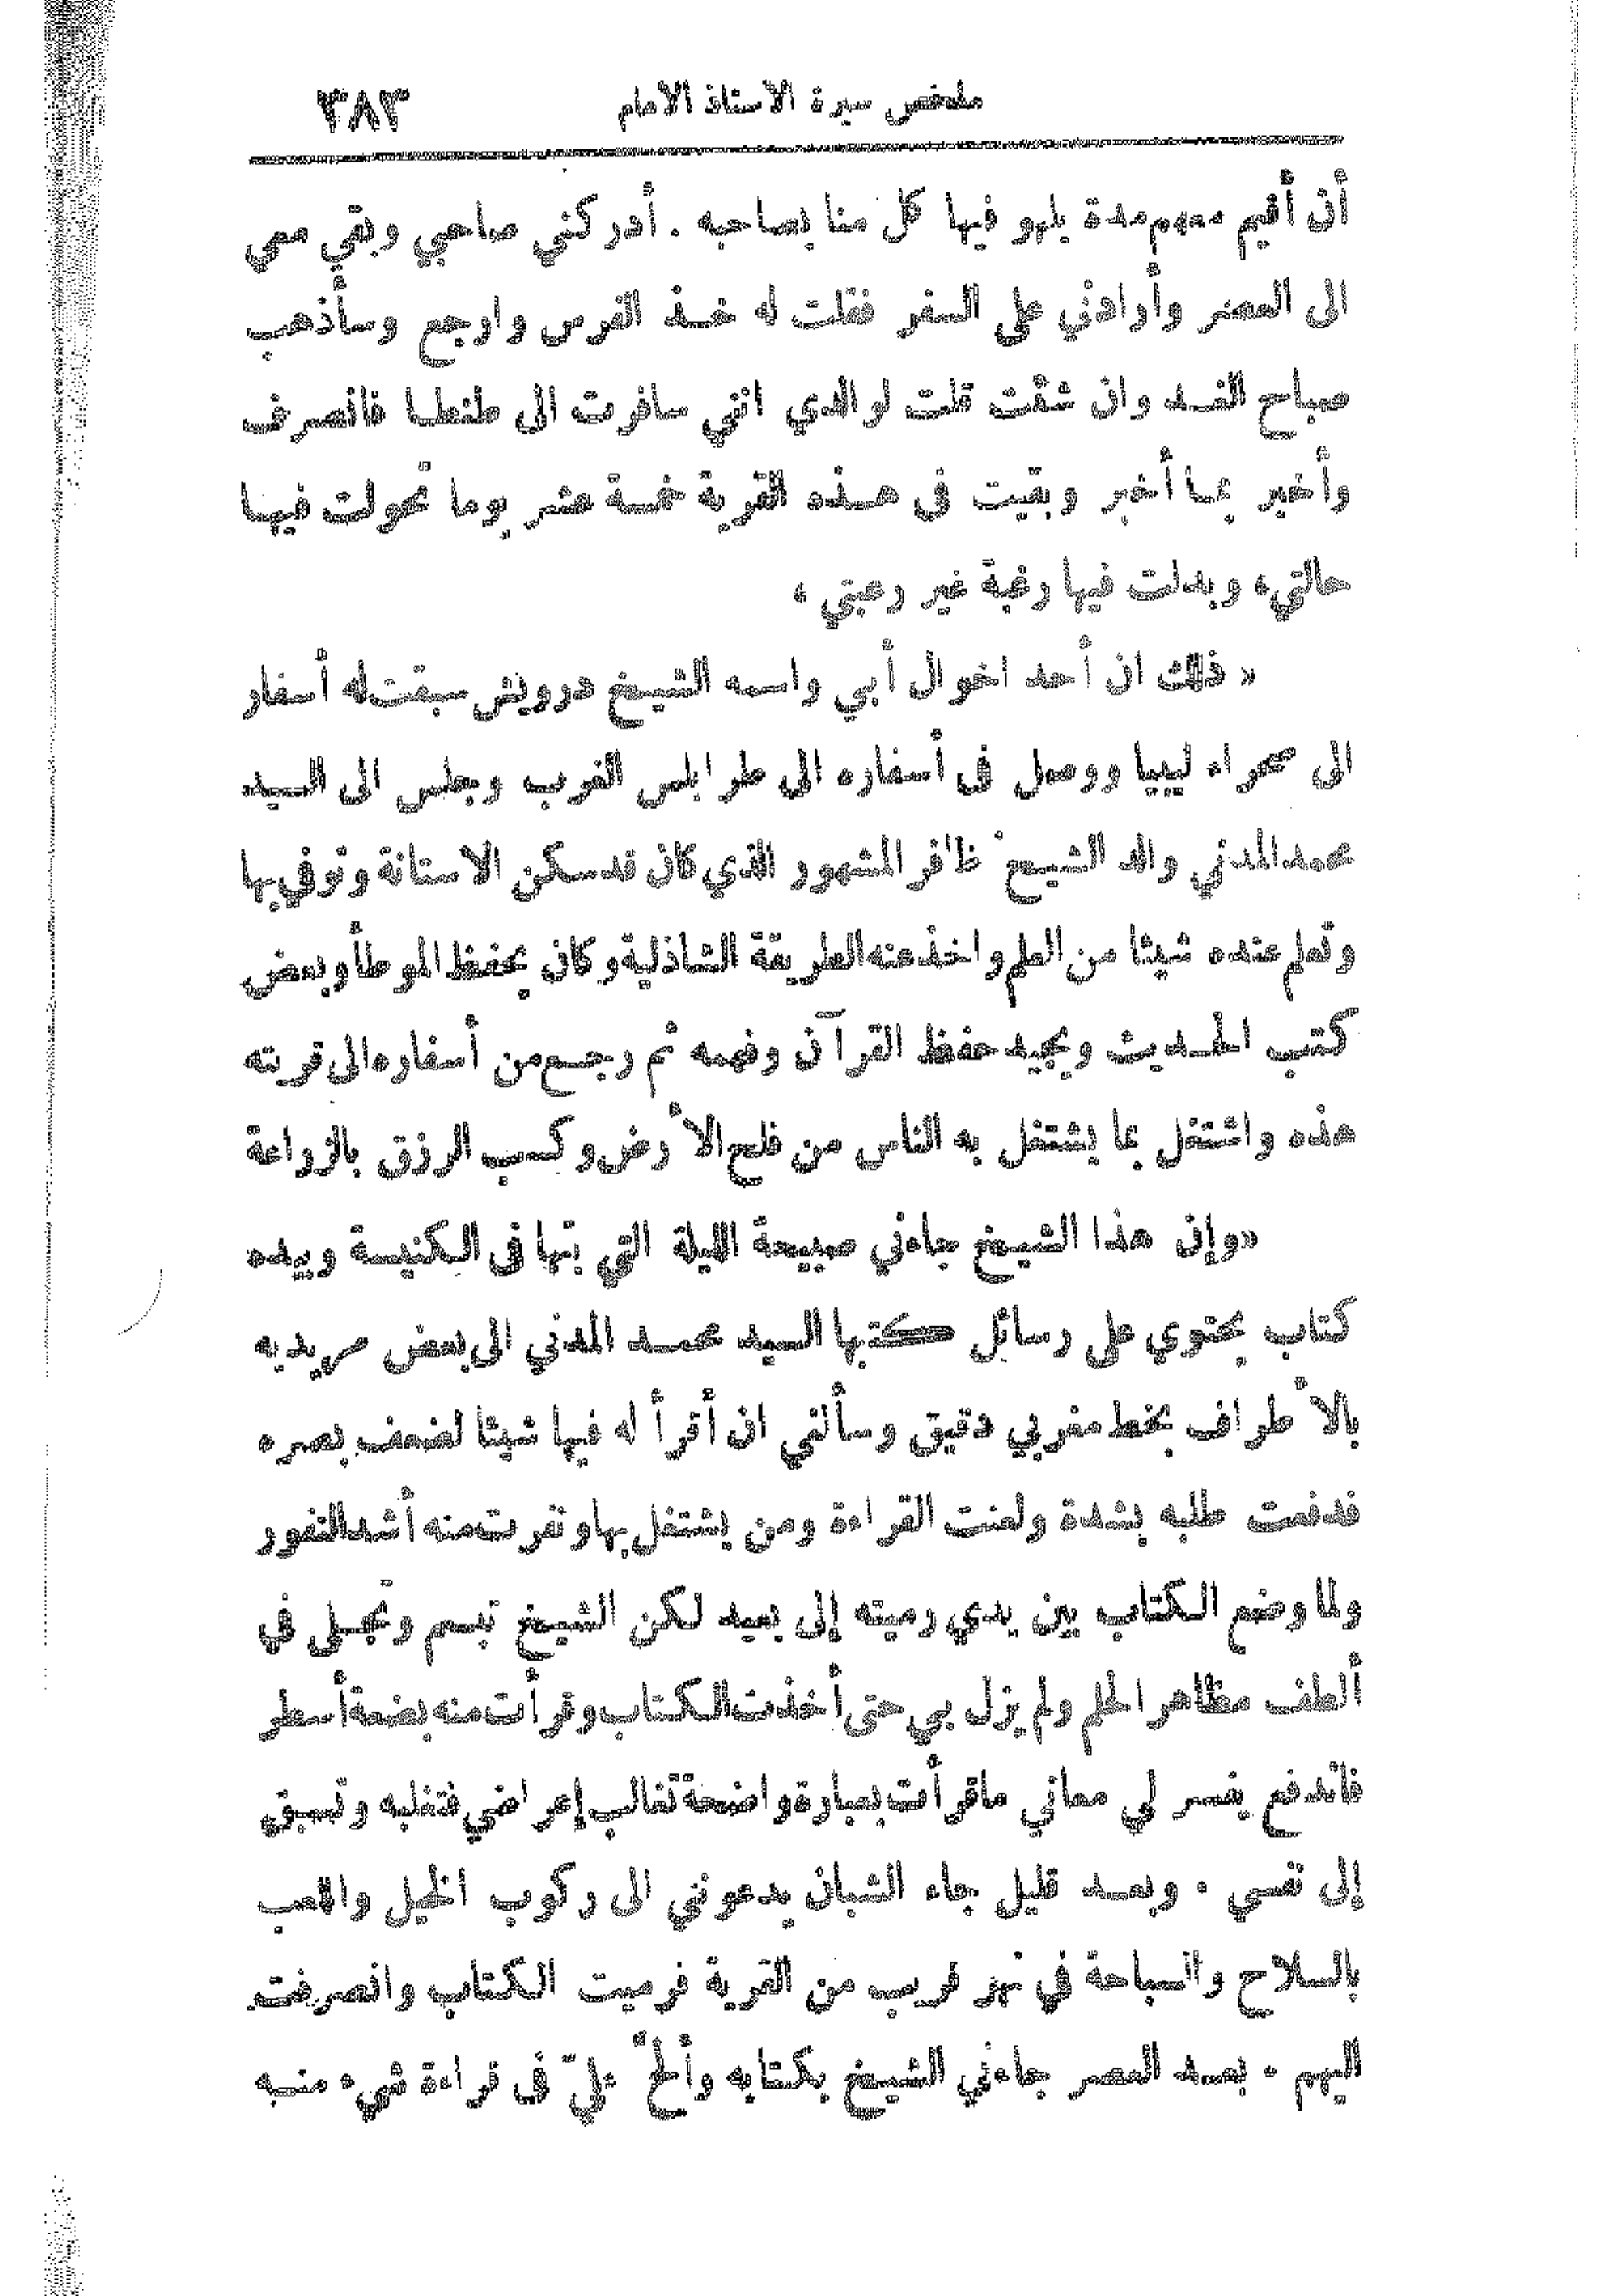 ملخص سيرة الاستاذ الامام ٣٨٣
أن أقيم معهم مدة يلهو فيها كل منا بصاحبه . أدركني صاحبي وبقي معي
الى العصر وأرادني على السفر فقلت له خذ الفرس وارجع وسأذهب
صباح الغد وان شئت قلت لوالدي انني سافرت الى طنطا فانصرف
وأخبر بما أخبر وبقيت فى هذه القرية خمسة عشر يوما تحولت فيها
حالتي، وبدلت فيها رغبة غير رغبتي ،
« ذلك ان أحد اخوال أبي واسمه الشيخ درويش سبقت له أسفار
الى صحراء ليبيا ووصل فى أسفاره الى طرابلس الغرب وجلس الى السيد
محمد المدني والد الشيخ ظافر المشهور الذي كان قد سكن الاستانة وتوفي بها
وتعلم عنده شيئا من العلم واخذ عنه الطريقة الشاذلية وكان يحفظ الموطأ وبعض
كتب الحديث ويجيد حفظ القرآن وفهمه ثم رجع من أسفاره الى قريته
هذه واشتغل بما يشتغل به الناس من فلح الأرض وكسب الرزق بالزراعة
«وإن هذا الشيخ جاءني صبيحة الليلة التي بتها فى الكنيسة وبيده
كتاب يحتوي على رسائل كتبها السيد محمد المدني الى بعض مريديه
بالأطراف بخط مغربي دقيق وسألني ان أقرأ له فيها شيئا لضعف بصره
فدفعت طلبه بشدة ولعنت القراءة ومن يشتغل بها ونفرت منه أشد النفور
ولما وضع الكتاب بين يدي رميته إلى بعيد لكن الشيخ تبسم وتجلى في
ألطف مظاهر الحلم ولم يزل بي حتى أخذت الكتاب وقرأت منه بضعة أسطر
فاندفع يفسر لي معاني ماقرأت بعبارة واضحة تغالب إعراضي فتغلبه وتسبق
إلى نفسي . وبعد قليل جاء الشبان يدعونني الى ركوب الخيل واللعب
بالسلاح والسباحة في نهر قريب من القرية فرميت الكتاب وانصرفت
اليهم . بعد العصر جاءني الشيخ بكتابه وألحّ عليّ فى قراءة شيء منه